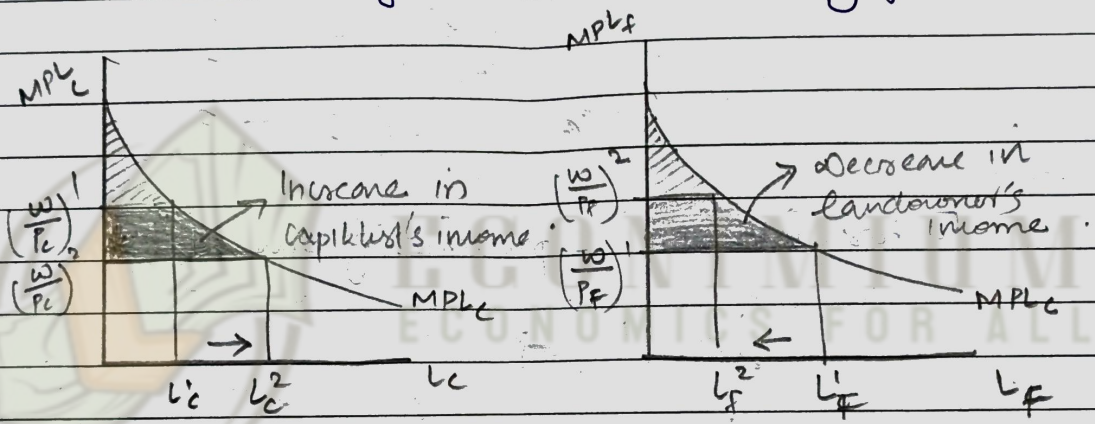 MPL_C
(w/P_C)^1
(w/P_C)^2
Increase in
capitalist's income.
MPL_C
L_C^1
L_C^2
L_C
MPL_f
(w/P_F)^2
(w/P_F)^1
Decrease in
landowner's
income.
MPL_C
L_f^2
L_F^1
L_F
ECONOMIUM
ECONOMICS FOR ALL